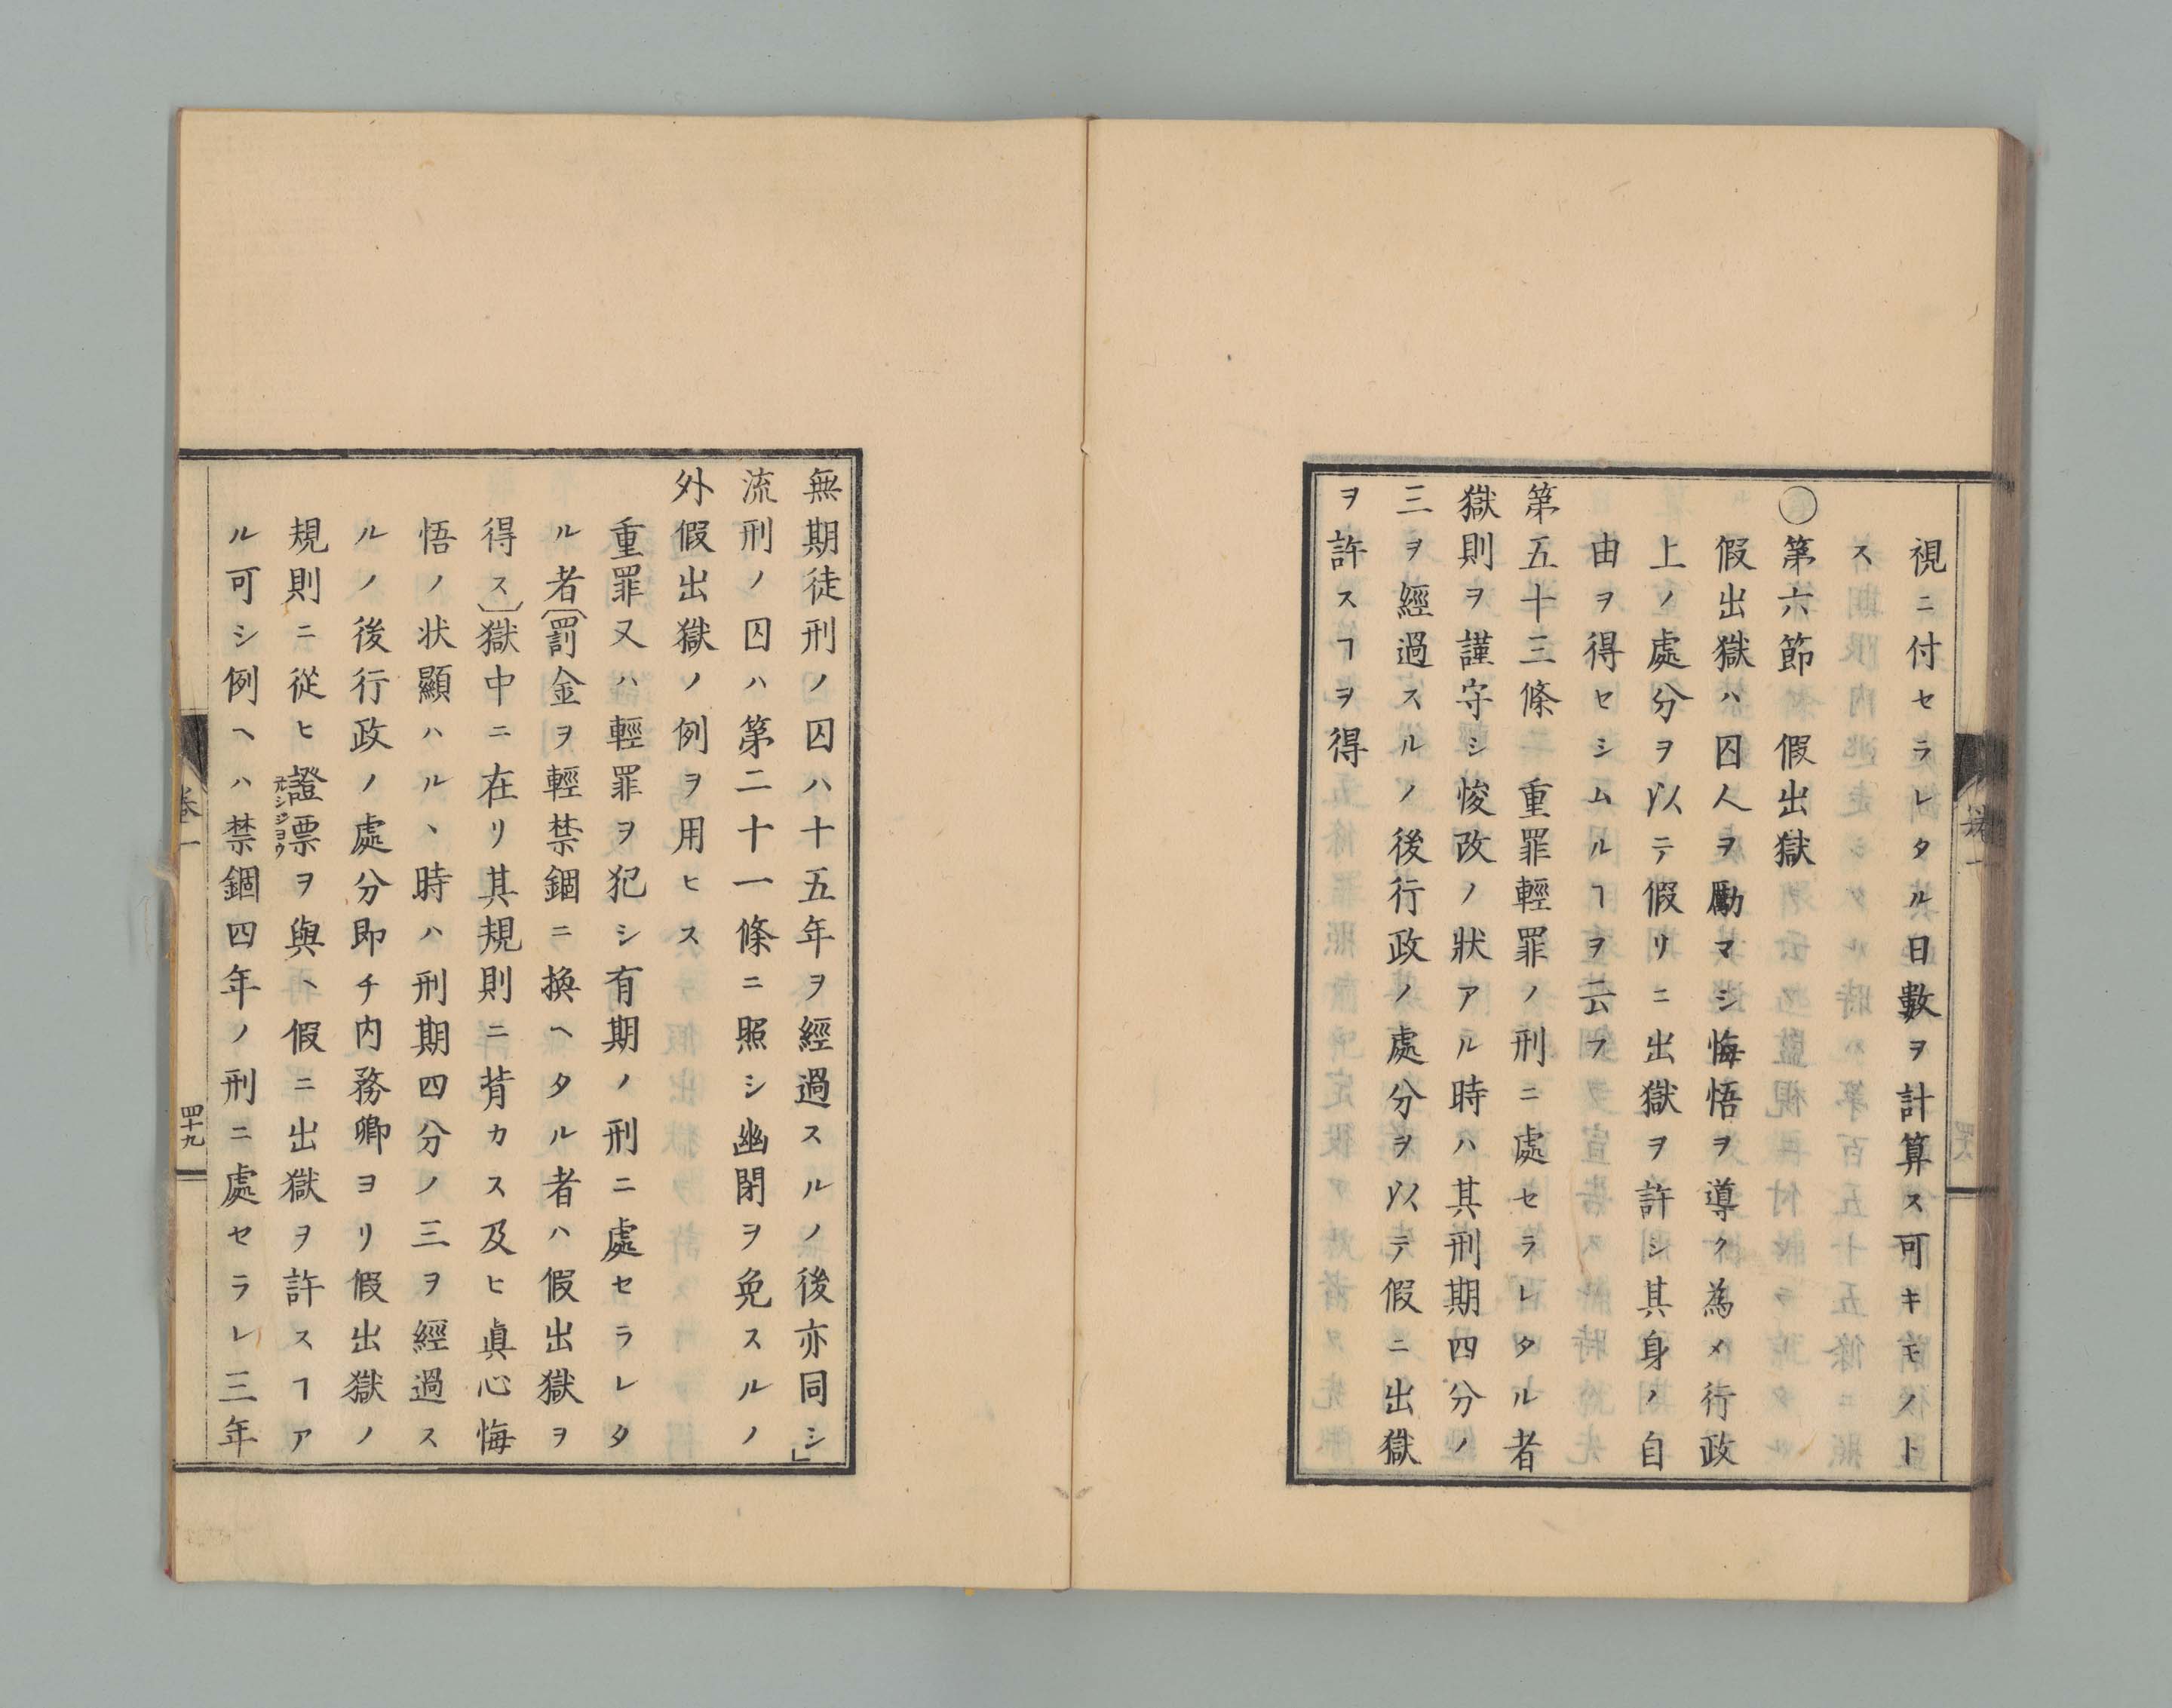 視ニ付セラレタル日數ヲ計算ス可キモノト
ス
○第六節 假出獄
假出獄ハ囚人ヲ勵マシ悔悟ヲ導ク為メ行政
上ノ處分ヲ以テ假リニ出獄ヲ許シ其身ノ自
由ヲ得セシムルヿヲ云フ
第五十三條 重罪輕罪ノ刑ニ處セラレタル者
獄則ヲ謹守シ悛改ノ狀アル時ハ其刑期四分ノ
三ヲ經過スルノ後行政ノ處分ヲ以テ假ニ出獄
ヲ許スヿヲ得
無期徒刑ノ囚ハ十五年ヲ經過スルノ後亦同シ」
流刑ノ囚ハ第二十一條ニ照シ幽閉ヲ免スルノ
外假出獄ノ例ヲ用ヒス
重罪又ハ輕罪ヲ犯シ有期ノ刑ニ處セラレタ
ル者〔罰金ヲ輕禁錮ニ換ヘタル者ハ假出獄ヲ
得ス〕獄中ニ在リ其規則ニ背カス及ヒ眞心悔
悟ノ状顯ハルヽ時ハ刑期四分ノ三ヲ經過ス
ルノ後行政ノ處分即チ内務卿ヨリ假出獄ノ
規則ニ從ヒ證票ヲ與ヽ假ニ出獄ヲ許スヿア
ル可シ例ヘハ禁錮四年ノ刑ニ處セラレ三年
卷一
四十九